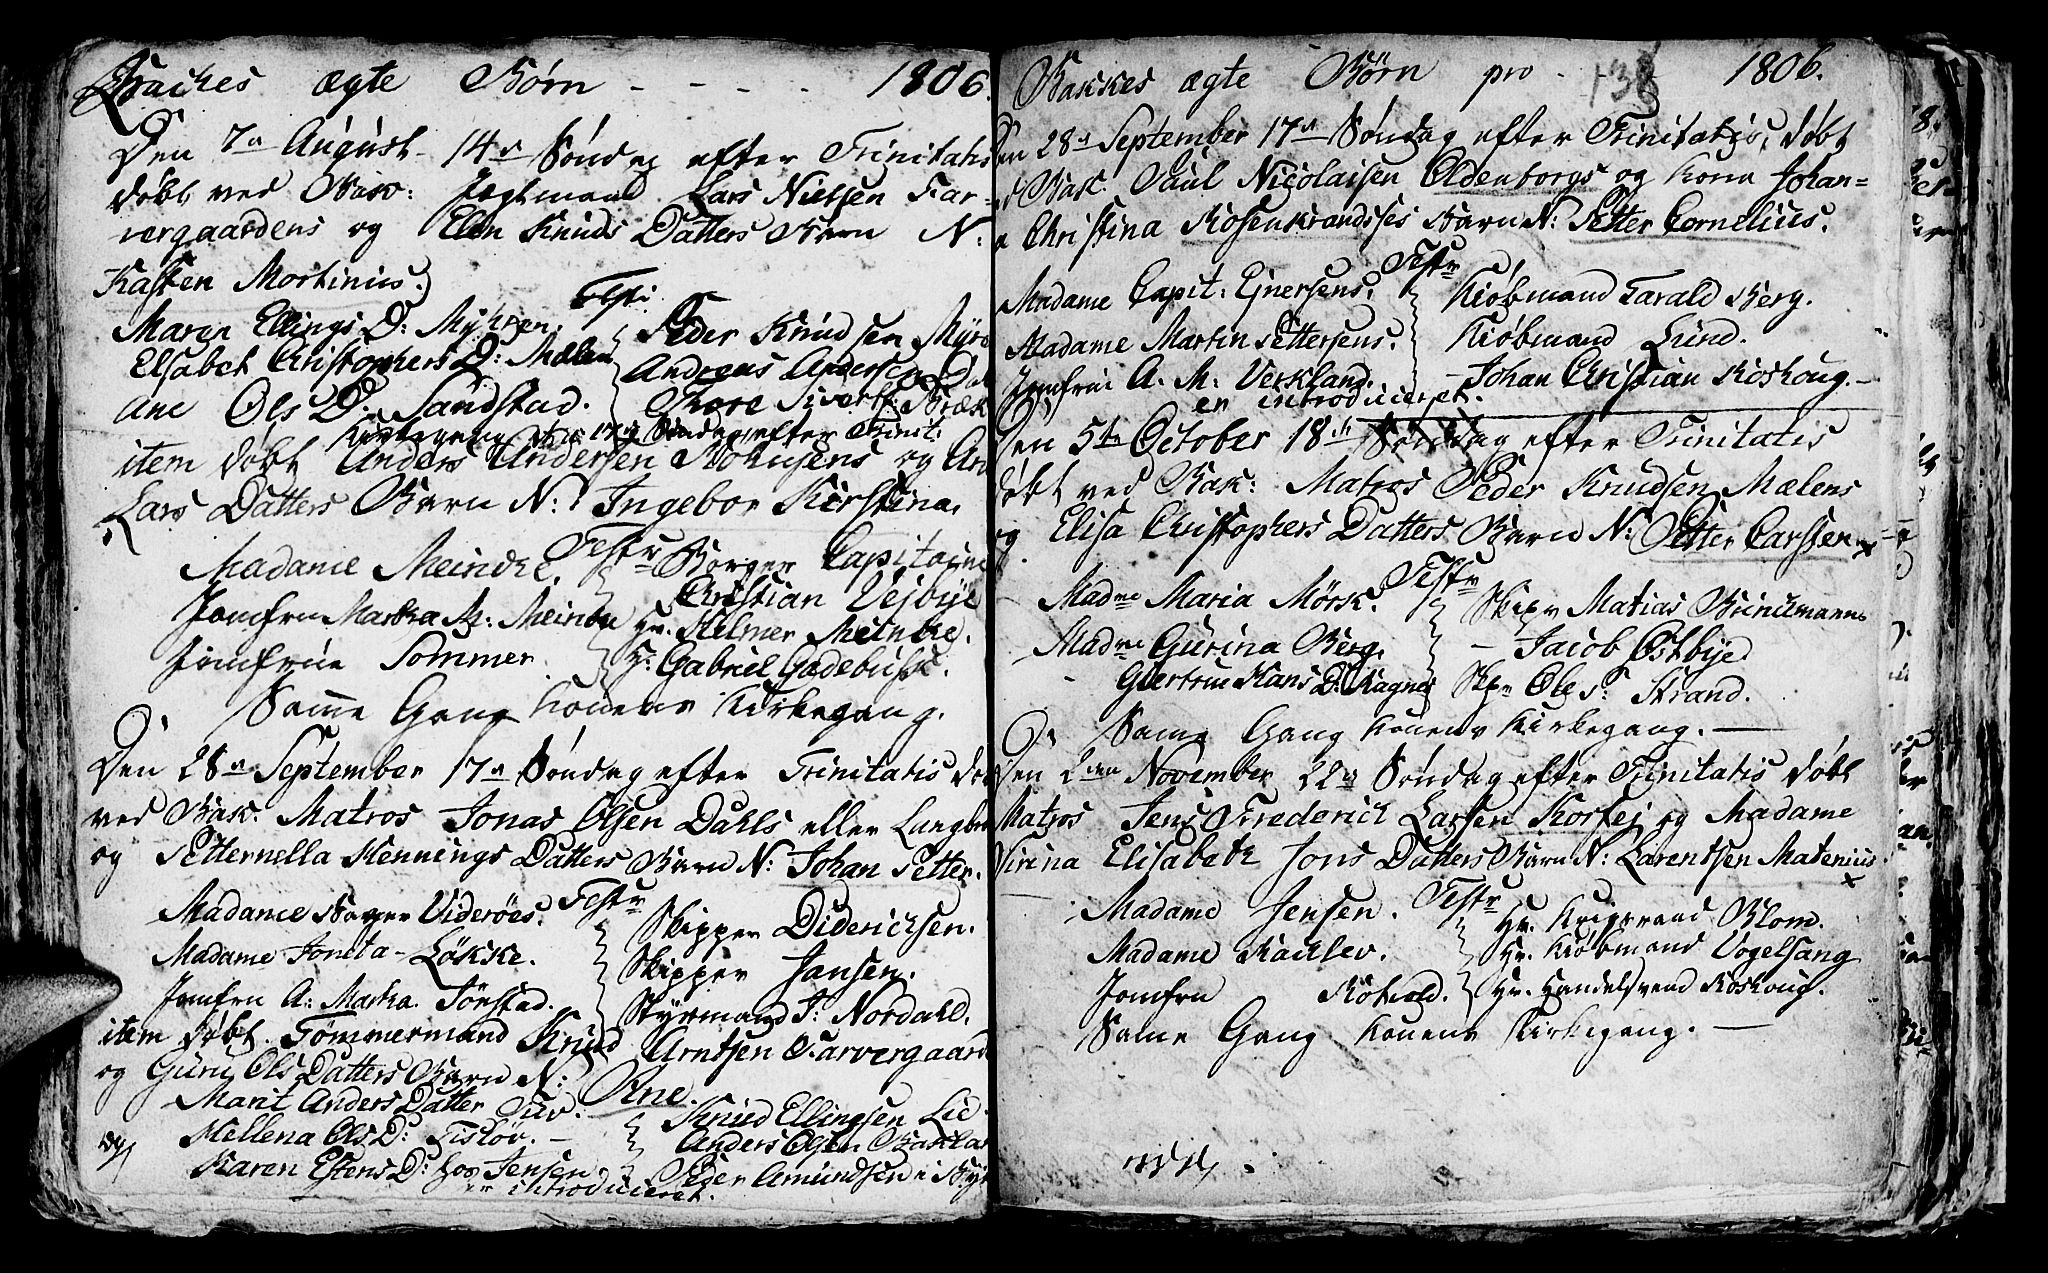 Backes ægte Børn - - - - 1806.
Den 7de August 14de Søndag efter Trinitatis
døbt ved Bak: Jegtmand Lars Nielsen Far-
vergaardens og Elen Knuds Datters Barn N:
Kasten Mortinus.
Testr:
Maren Ellings D: Myhren.
Elsabet Christophers D: Mælen
Ane Ols D: Sandstad.
Peder Knudsen Myre
Andreas Andersen
Thore Sivert:
Kirkegang 17de Søndag efter Trinit:
item døbt Anders Andersen og An
Lars Datters Barn N: Ingebor Kirstina.
Testr
Madame Meincke.
Jomfru Martha M: Meincke
Jomfrue Sommer
Borger Capitaine
Christian Vejbye
Hr. Hilmer Meincke.
H: Gabriel Gædebusch.
Samme Gang Konens Kirkegang.
Den 28de September 17de Søndag efter Trinitatis døb
ved Bak: Matros Jonas Olsen Dahls eller
og Petternella Hennings Datters Barn N: Johan Petter.
Testr
Madame Viderøes.
Madame Joneta Løkske.
Jomfru A: Martha Tørstad.
Skipper Diderichsen.
Skipper Jansen.
Styrmand J: Nordahl.
item døbt Tømmermand Knud Arntsen Farvergaard
og Guru Ols Datters Barn N: Ane.
Marit Anders Datter
Hellena Ols D:
Karen Estens D: hos Jensen
Knud Ellingsen Lie
Anders Olsen Baklan
Peder Amundsen i
er introduceret.
Bakkes ægte Børn pro - 138 1806.
Den 28de September 17de Søndag efter Trinitatis, døbt
Bak: Paul Nicolaisen Oldenborgs og Kone Johan-
Christina Rosenkrandsses Barn N: Petter Cornelius.
Testr
Madame Capit: Ejnersens.
Madame Martin Pettersens.
Jomfrue A. M. Verkland.
Kiøbmand Harald Berg.
Kiøbmand Lund.
- Johan Christian Roskoug.
er introduceret.
Den 5te October 18de Søndag efter Trinitatis
døbt ved Bak: Matros Peder Knudsen Mælens
og Elisa Christophers Datters Barn N: Petter Carsten
Testr
Madme Maria Mørsk.
Madme Gurina Berg.
Giertrue Hans D:
Skipr Matias Brinckmann
- Jacob Østbye
Skpr Ole S: Strand.
Samme Gang Konens Kirkegang.
Den 2den November 22de Søndag efter Trinitatis døbt
Matros Jens Frederich Larsen Korsej og Madame
Sirina Elisabeth Jons Datters Barn N: Larentsen Matenius.
Testr
Madame Jensen.
Madame Rachlev.
Jomfru Røtvold.
Hr. Blom.
Hr. Kiøbmand Vogelsang
Hr. Handelsvend Roskoug.
Same Gang Konens Kirkegang.